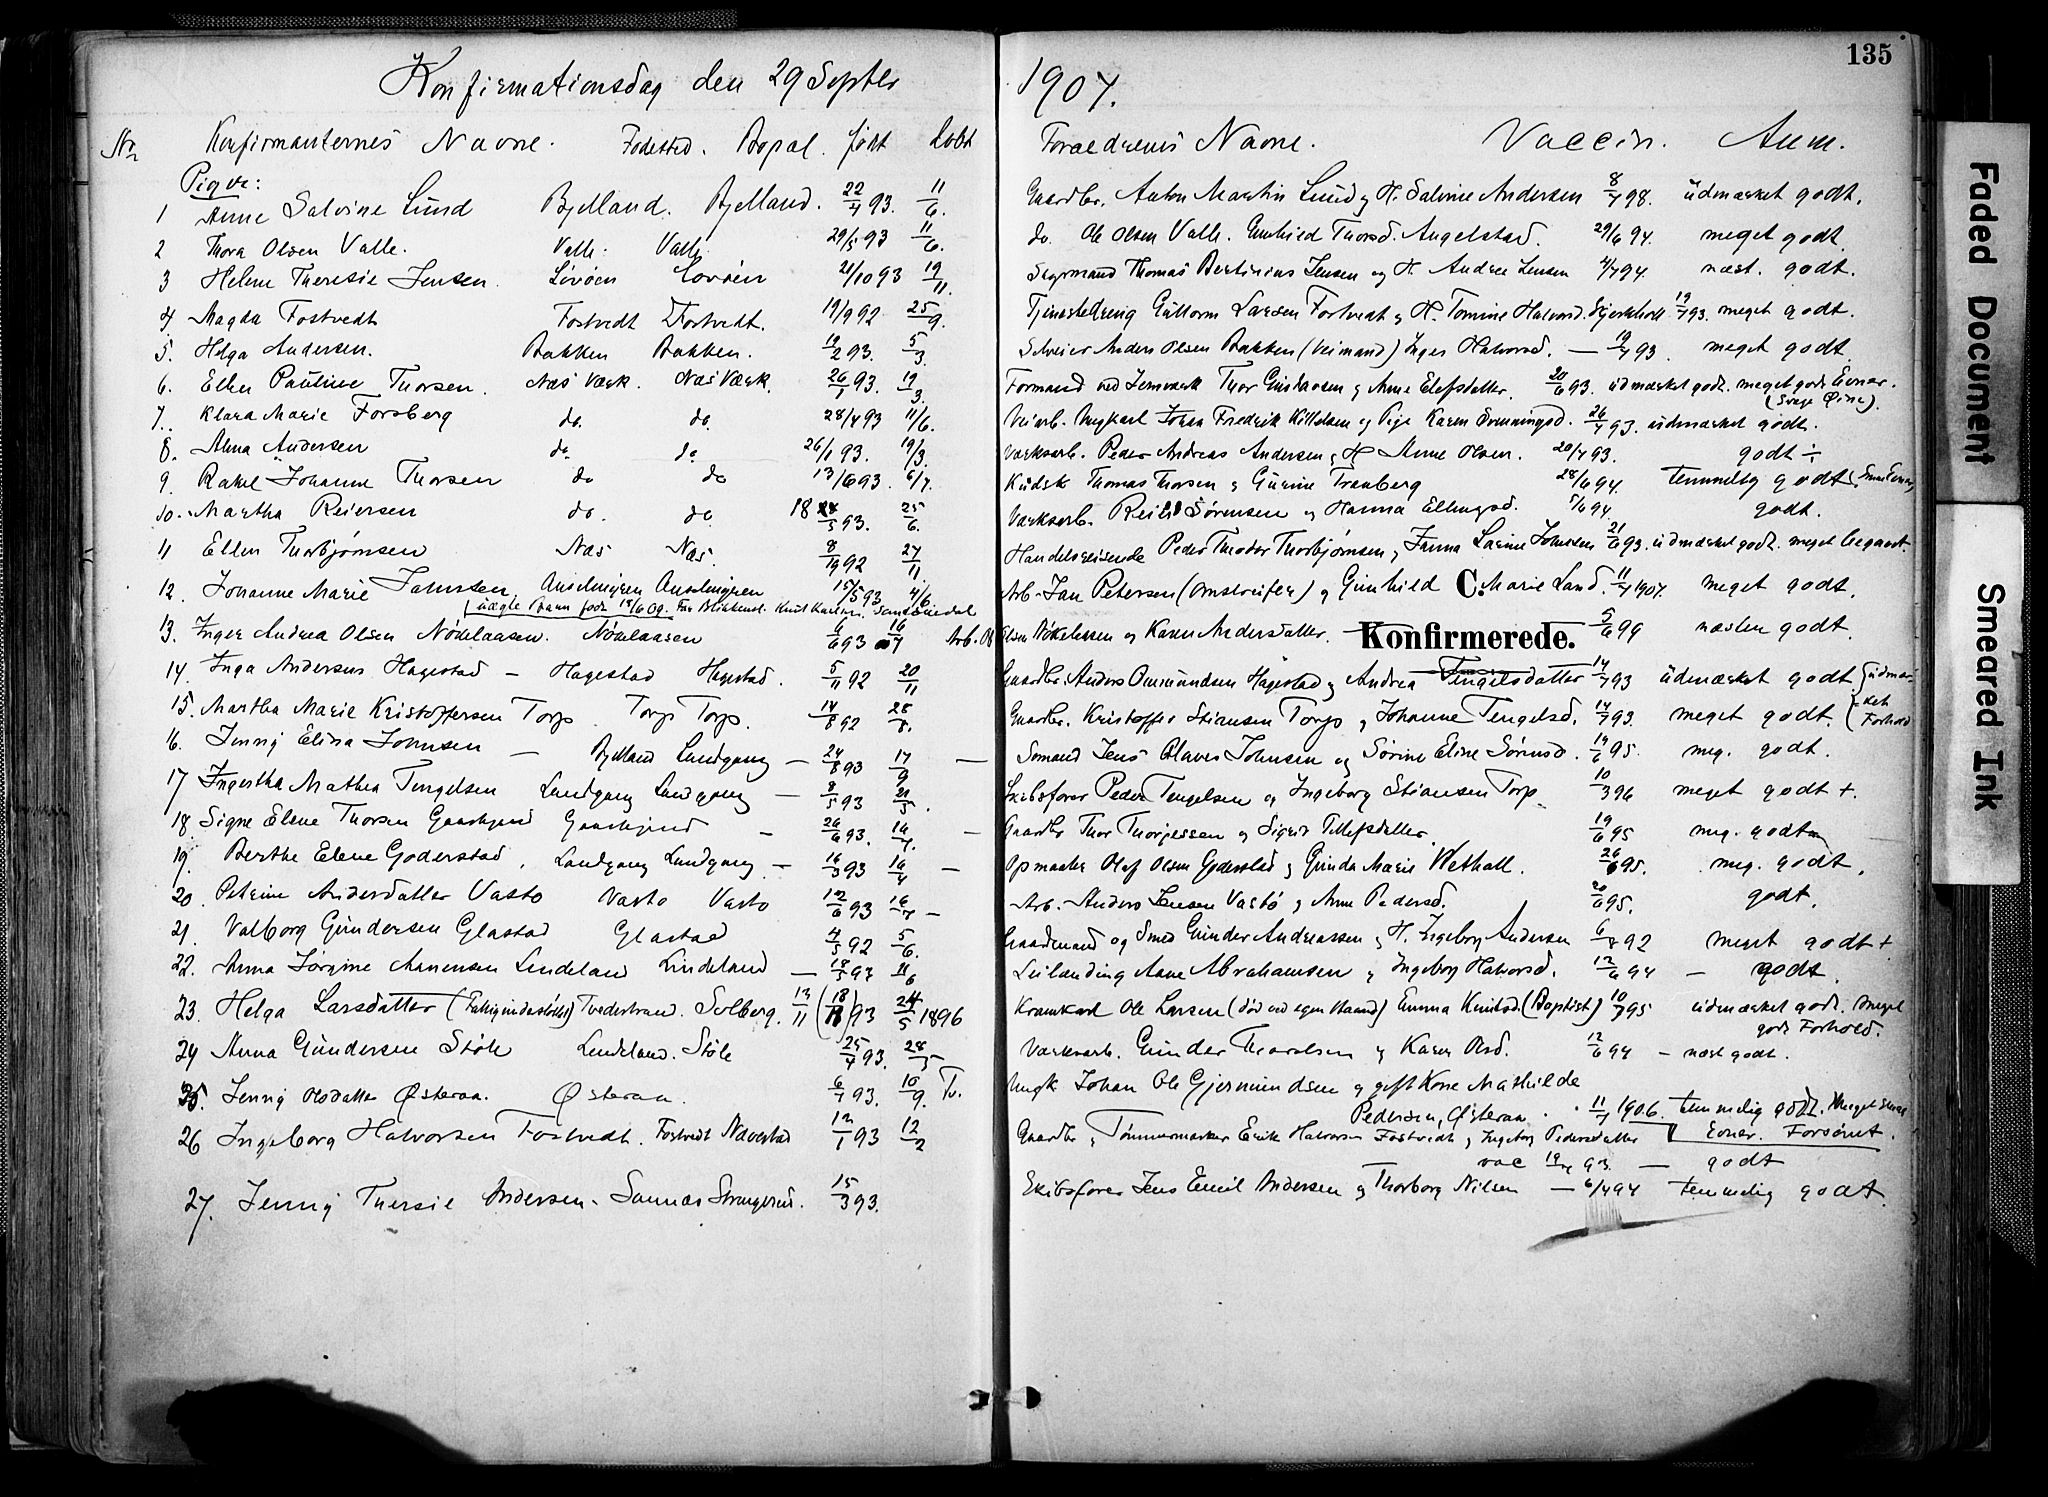 135
Konfirmationsdag den 29 Septbr 1907.
No Konfirmanternes Navne. Fødested. Bopæl. født døbt Forældrenes Navne. Vaccin. Anm.
Piger:
1 Anne Salvine Lund Bjelland. Bjelland. 22/4 93. 11/6. Gaardbr. Anton Martin Lund og H. Salvine Andersen 8/7 98. udmærket godt.
2 Thora Olsen Valle. Valle. Valle. 29/5 93 11/6. do. Ole Olsen Valle. Gunhild Thorsd. Angelstad. 29/6 94. meget godt.
3 Helene Theresie Jensen. Løvöen Lovöen 21/10 93 19/11. Thomas Bertinius Jensen og H. Andrea Jensen 4/7 94. næst. godt.
4 Magda Fostvedt Fostvedt Fostvedt. 19/9 92 25/9. Guttorm Larsen Fostvedt og H. Tomine Halvorsd. 19/7 93. meget godt.
5. Helga Andersen. Bakken Bakken. 19/2 93. 5/3. Anders Olsen Bakken (Veimand) Inger Halvorsd. — 19/7 93. meget godt.
6. Ellen Pauline Thorsen. Næs Værk. Næs Værk. 26/1 93. 19/3. Formand ved Jernværk Thor Gustavsen og Anne Elefsdatter. 20/6 93. udmærket godt. meget gode Evner.
(svage Øine).
7. Klara Marie Forsberg do. do. 28/4 93 11/6. Johan Fredrik Killelsen og Pige Karen 26/7 93. udmærket godt.
8. Alma Andersen do do 26/1 93. 19/3. Værksarb. Peder Andreas Andersen og H Anne Olsen. 20/7 93. godt ÷
9. Rakel Johanne Thorsen do do 13/6 93. 6/7. Kudsk Thomas Thorsen og Gurine Tranberg 28/6 94. temmelig godt
10. Martha Reiersen do. do 18 /5 93. 25/6. Værksarb. Sørensen og Hanna Ellingsd. 5/6 94. godt.
11 Ellen Thorbjørnsen Næs Næs. 8/10 92 27/11 Handelsreisende Peder Theodor Thorbjørnsen og Fanna Larine Johnsen 21/6 93. udmærket godt. meget begavet.
12. Johanne Marie Jahnsen Anselmyren Anselmyren 15/5 93 4/6 Arb. Jan Petersen (Omstreifer) og Gunhild C. Marie Land. 11/7 1907. meget godt.
13. Inger Andrea Olsen Nødelaasen. Nødelaasen 6/6 93 16/7 Arb. Ole Olsen og Karen Andersdatter. Konfirmerede. 5/6 99 næsten godt.
14. Inga Andersens Hagestad — Hagestad Hagestad. 5/11 92 20/11 Gaardbr. Anders Ommundsen Hagestad og Andrea Tengelsdatter 14/7 93 udmærket godt
15. Martha Marie Kristoffersen Torp. Torp Torp. 14/8 92 28/8. Gaardbr. Kristoffer Stiansen Torp og Johanne Tengelsd. 14/7 93. meget godt. udmærket Forhold
16. Jenny Elina Johnsen — Bjelland Landgang — 24/8 93 17/9 — Sømand Jens Olaves Johnsen og Sørine Eline Sørensd. 19/6 95. meg. godt.
17 Ingertha Mathea Tengelsen Landgang Landgang — 8/5 93 21/5. Skibsfører Peder Tengelsen og Ingeborg Stiansen Torp 10/3 96 meget godt +.
18. Signe Elene Thorsen Gaaskjend Gaaskjend — 26/6 93. 16/7. — Gaardbr Thor Thorjessen og Sigrid Tellefsdatter. 19/6 95 meg. godt
19. Berthe Elene Goderstad, Landgang Landgang — 16/3 93 16/4 — Opmaaler Olaf Olsen Goderstad og Gunda Marie Wethall. 26/6 95. meg. godt.
20. Petrine Andersdatter Vasto Vasto Vasto 12/6 93 16/7 — Arb. Anders Jensen Vastö og Anne Pedersd. 20/6 95. godt.
21. Valborg Gundersen Glastad Glastad 4/5 92 5/6. Gaardmand og Smed Gunder Andreassen og H. Ingeborg Andersen 6/8 92 meget godt +
22. Anna Jørgine Aanensen Lindeland Lindeland — 18/5 93 11/6 Leilænding Aane Abrahamsen og Ingeborg Halvorsd. 12/6 94 — godt.
23. Helga Larsdatter (Fattigunderstøttet) Tvedestrand. Solberg. 13/11 (18/11) 93 24/5 1896 Kramkarl Ole Larsen (død ved egen Haand) Emma Knutsd. (Baptist) 10/7 95 udmærket godt. Meget
godt Forhold.
24 Anna Gundersen Støle Lindeland. Støle 25/4 93. 28/5 Værksarb. Gunder Tharalsen og Karen Olsd. 12/6 94 — næst godt.
25. Jenny Olsdatter Østeraa. Østeraa. 6/7 93. 10/9. Tv. Ungk Johan Ole Gjermundsen og gift Kone Mathilde
Pedersen, Østeraa. 11/7 1906. temmelig godt. Meget
Evner. Forsømt.
26 Ingeborg Halvorsen Fostvedt. Fostvedt Navestad 12/1 93 12/2 Gaardbr og Tømmermærker Erik Halvorsen Fostvedt og Ingeborg Pedersdatter
vac 19/7 93. — godt
27. Jenny Thersie Andersen. Sannæs 15/3 93. Skibsfører Jens Emil Andersen og Thorborg Nilsen — 6/7 94 temmelig godt.
Faded Document
Smeared Ink